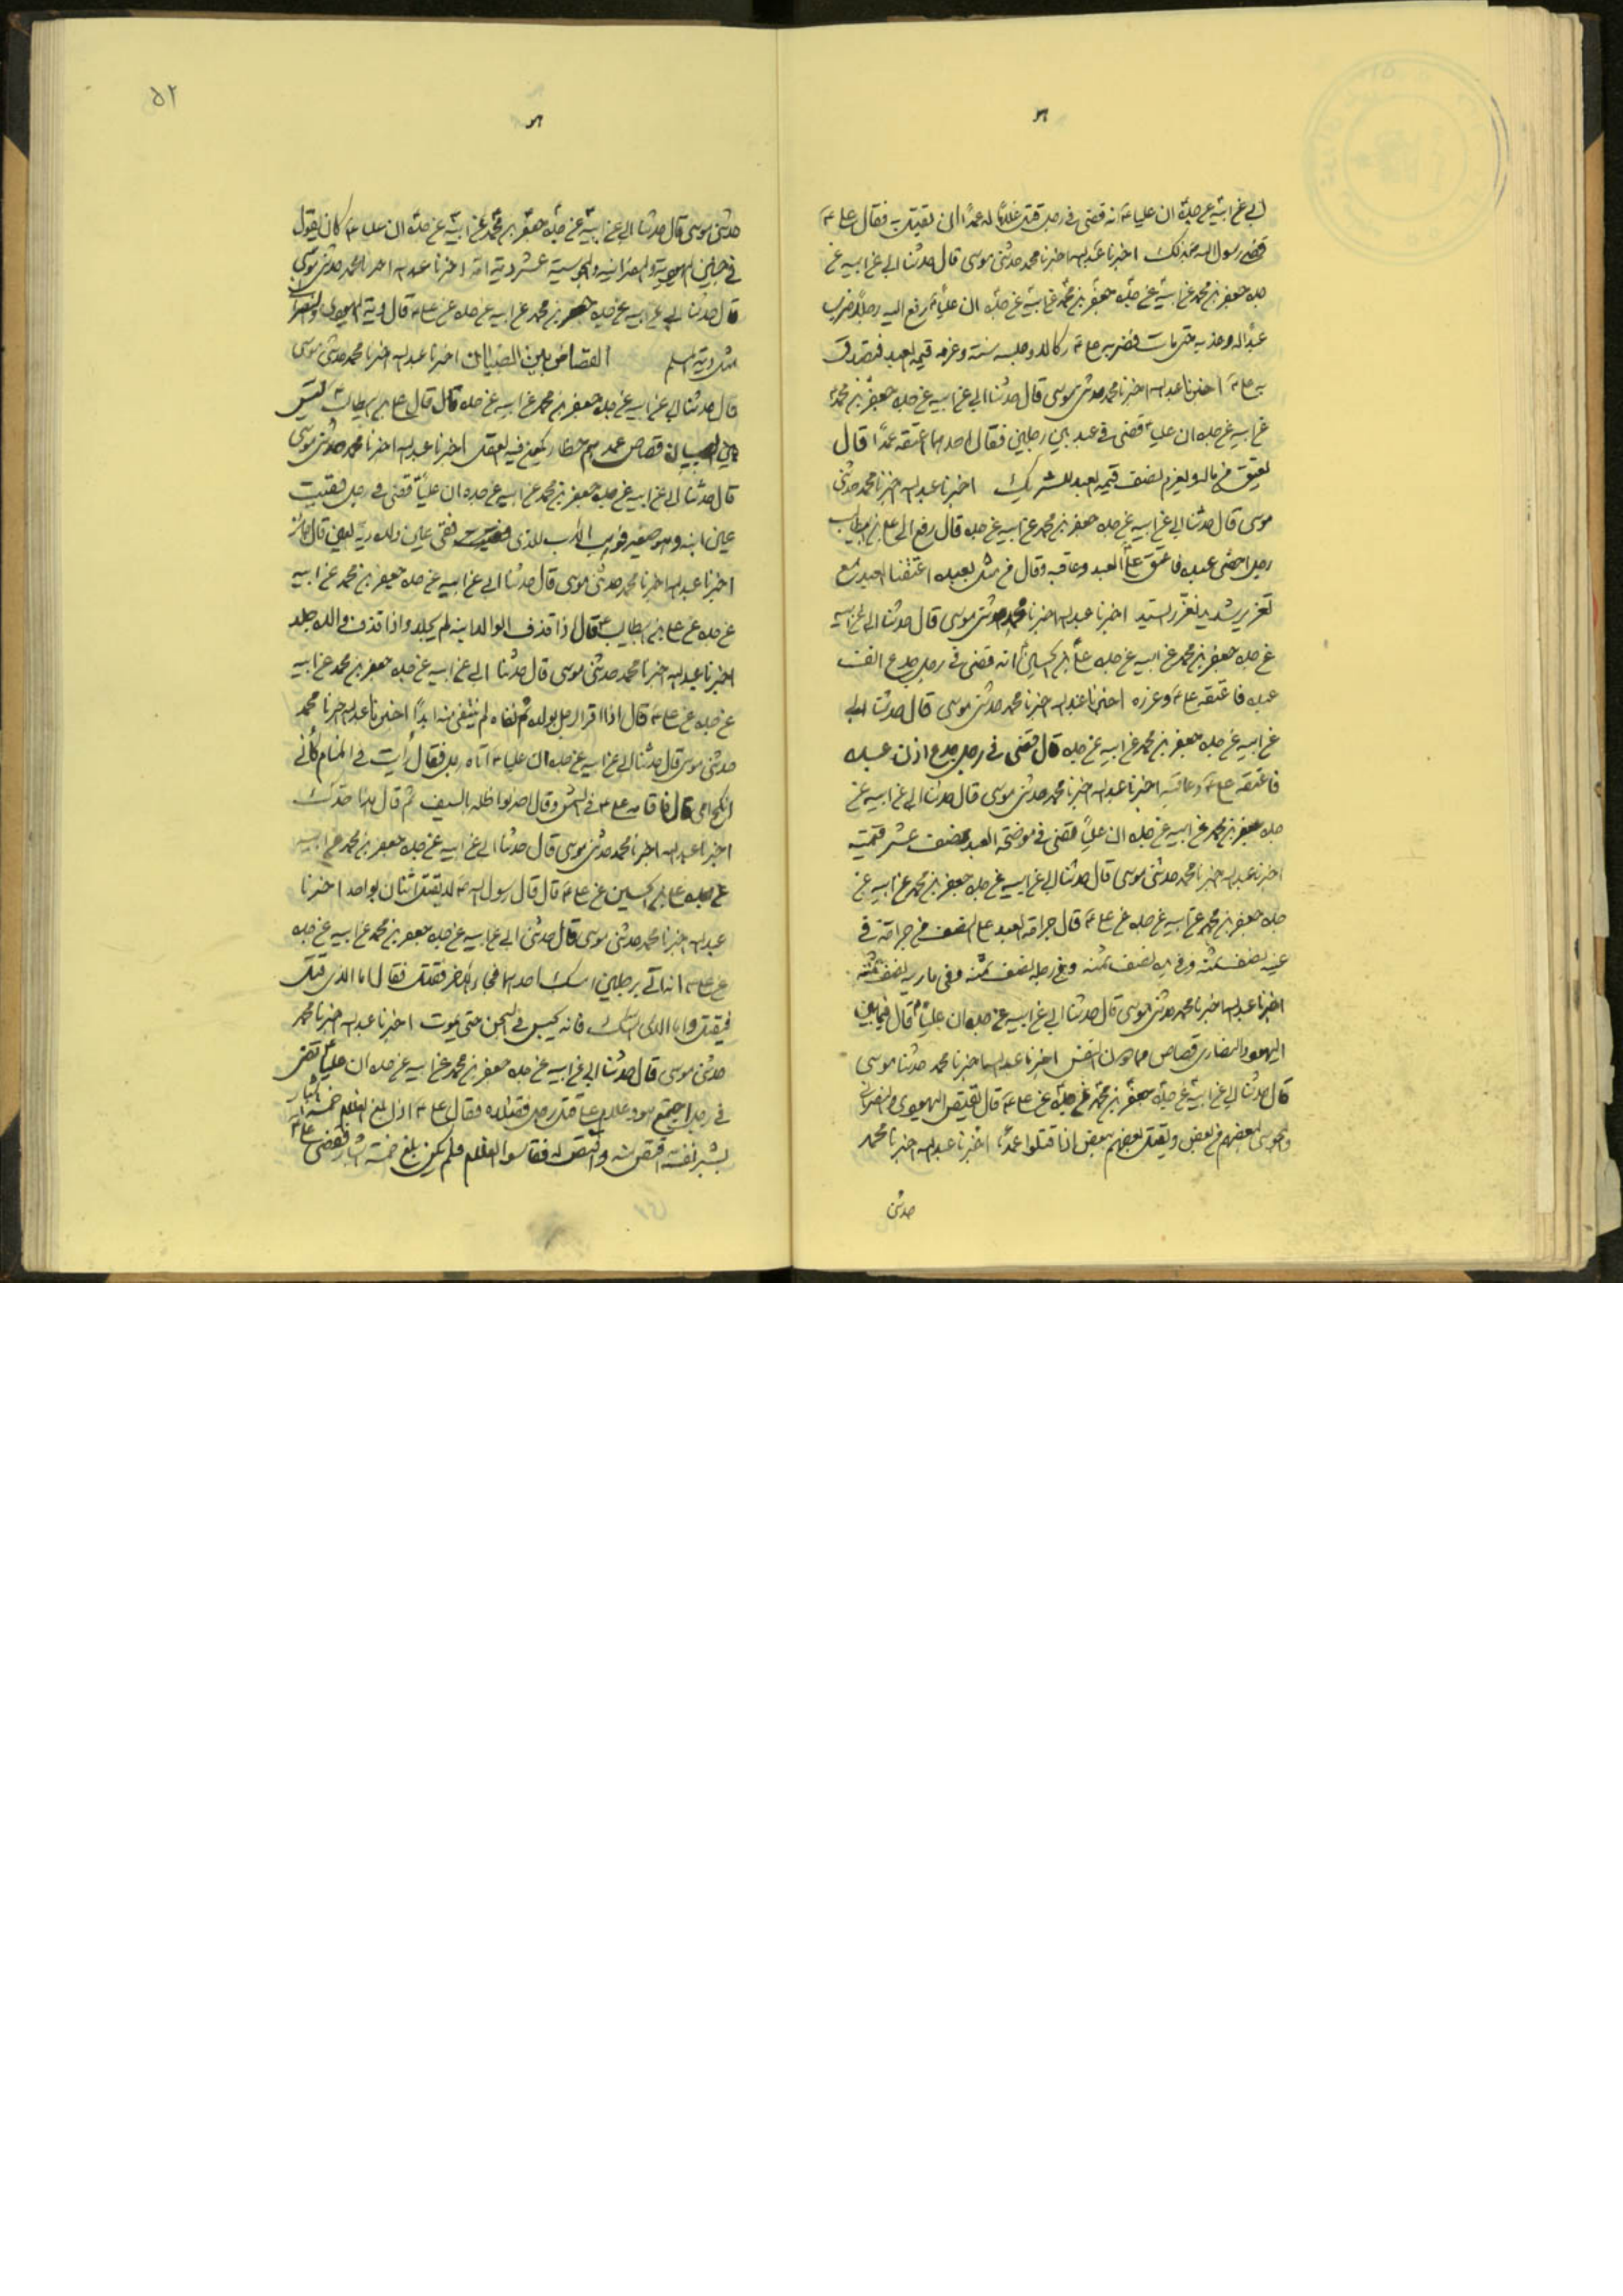 ابي عن ابيه عن جده ان عليا ع انه قضى في رجل قتل غلاما له عمدا ان يقتل به فقال علي ع
قضى رسول الله ص بذلك اخبرنا عبد الله اخبرنا محمد حدثني موسى قال حدثنا ابي عن ابيه عن
جده جعفر بن محمد عن ابيه عن جده جعفر بن محمد عن ابيه عن جده ان عليا ع رفع اليه رجل ضرب
عبدا له وعذبه حتى مات فضربه علي ع نكالا وحبسه سنة وغرمه قيمة العبد فتصدق
به علي ع اخبرنا عبد الله اخبرنا محمد حدثني موسى قال حدثنا ابي عن ابيه عن جده جعفر بن محمد
عن ابيه عن جده ان عليا ع قضى في عبد بين رجلين فقال احدهما اعتقه عمدا قال
يعتق من ماله ويغرم نصف قيمة العبد للشريك اخبرنا عبد الله اخبرنا محمد حدثني
موسى قال حدثنا ابي عن ابيه عن جده جعفر بن محمد عن ابيه عن جده قال رفع الى علي بن ابيطالب
رجل اخصى عبده فاعتق علي العبد وعاقبه وقال من مثل بعبده اعتقنا العبد مع
تعزير شديد نعزر السيد اخبرنا عبد الله اخبرنا محمد حدثني موسى قال حدثنا ابي عن ابيه
عن جده جعفر بن محمد عن ابيه عن جده علي بن الحسين انه قضى في رجل جدع انف
عبده فاعتقه علي ع وعزره اخبرنا عبد الله اخبرنا محمد حدثني موسى قال حدثنا ابي
عن ابيه عن جده جعفر بن محمد عن ابيه عن جده قال قضى في رجل جدع اذن عبده
فاعتقه علي ع وعاقبه اخبرنا عبد الله اخبرنا محمد حدثني موسى قال حدثنا ابي عن ابيه عن
جده جعفر بن محمد عن ابيه عن جده ان عليا قضى في موضحة العبد نصف عشر قيمته
اخبرنا عبد الله اخبرنا محمد حدثني موسى قال حدثنا ابي عن ابيه عن جده جعفر بن محمد عن ابيه عن
جده جعفر بن محمد عن ابيه عن جده عن علي ع قال جراحة العبد على النصف من جراحة في
عينه نصف ثمنه وفي يده نصف ثمنه وفي رجله نصف ثمنه وفي مارنه نصف ثمنه
اخبرنا عبد الله اخبرنا محمد حدثني موسى قال حدثنا ابي عن ابيه عن جده ان عليا ع قال فيما بين
اليهود والنصارى قصاص فيما دون النفس اخبرنا عبد الله اخبرنا محمد حدثنا موسى
قال حدثنا ابي عن ابيه عن جده جعفر بن محمد عن جده عن علي ع قال يقتص اليهودي والنصراني
والمجوسي بعضهم من بعض ويقتل بعضهم ببعض اذا قتلوا عمدا اخبرنا عبد الله اخبرنا محمد
حدثني
٥٢
حدثني موسى قال حدثنا ابي عن ابيه عن جده جعفر بن محمد عن ابيه عن جده ان عليا ع كان يقول
في جنين اليهودية والنصرانية والمجوسية عشر دية امه اخبرنا عبد الله اخبرنا محمد حدثني موسى
قال حدثنا ابي عن ابيه عن جده جعفر بن محمد عن ابيه عن جده عن علي ع قال دية اليهودي والنصراني
مثل دية المسلم القصاص بين الصبيان اخبرنا عبد الله اخبرنا محمد حدثني موسى
قال حدثنا ابي عن ابيه عن جده جعفر بن محمد عن ابيه عن جده قال قال علي بن ابيطالب ع ليس
بين الصبيان قصاص عمدهم خطأ يكون فيه العقل اخبرنا عبد الله اخبرنا محمد حدثني موسى
قال حدثنا ابي عن ابيه عن جده جعفر بن محمد عن ابيه عن جده ان عليا ع قضى في رجل فقئت
عين ابنه وهو صغير فوهب الاب للذي فقئت عين ولده دية العين قال جائز
اخبرنا عبد الله اخبرنا محمد حدثني موسى قال حدثنا ابي عن ابيه عن جده جعفر بن محمد عن ابيه
عن جده عن علي بن ابيطالب ع قال اذا قذف الوالد ابنه لم يجلد واذا قذف والده جلد
اخبرنا عبد الله اخبرنا محمد حدثني موسى قال حدثنا ابي عن ابيه عن جده جعفر بن محمد عن ابيه
عن جده عن علي ع قال اذا اقر الرجل بولده ثم نفاه لم ينتفي منه ابدا اخبرنا عبد الله اخبرنا محمد
حدثني موسى قال حدثنا ابي عن ابيه عن جده ان عليا ع اتاه رجل فقال رأيت في المنام كأني
انكح امي قال فاقامه علي ع في الشمس وقال اضربوا ظله بالسيف ثم قال هذا حدك
اخبرنا عبد الله اخبرنا محمد حدثني موسى قال حدثنا ابي عن ابيه عن جده جعفر بن محمد عن ابيه
عن جده علي بن الحسين عن علي ع قال قال رسول الله ص لا يقتل اثنان بواحد اخبرنا
عبد الله اخبرنا محمد حدثني موسى قال حدثني ابي عن ابيه عن جده جعفر بن محمد عن ابيه عن جده
عن علي ع انه اتي برجلين امسك احدهما فجاء الاخر فقتل فقال اما الذي قتل
فيقتل واما الذي امسك فانه يحبس في السجن حتى يموت اخبرنا عبد الله اخبرنا محمد
حدثني موسى قال حدثنا ابي عن ابيه عن جده جعفر بن محمد عن ابيه عن جده ان عليا ع قضى
في رجل اجتمع هو وغلام على قتل رجل فقتلاه فقال علي ع اذا بلغ الغلام خمسة اشبار
بشبر نفسه اقتص منه واقتص له فقاسوا الغلام فلم يكن بلغ خمسة اشبار فقضى علي ع